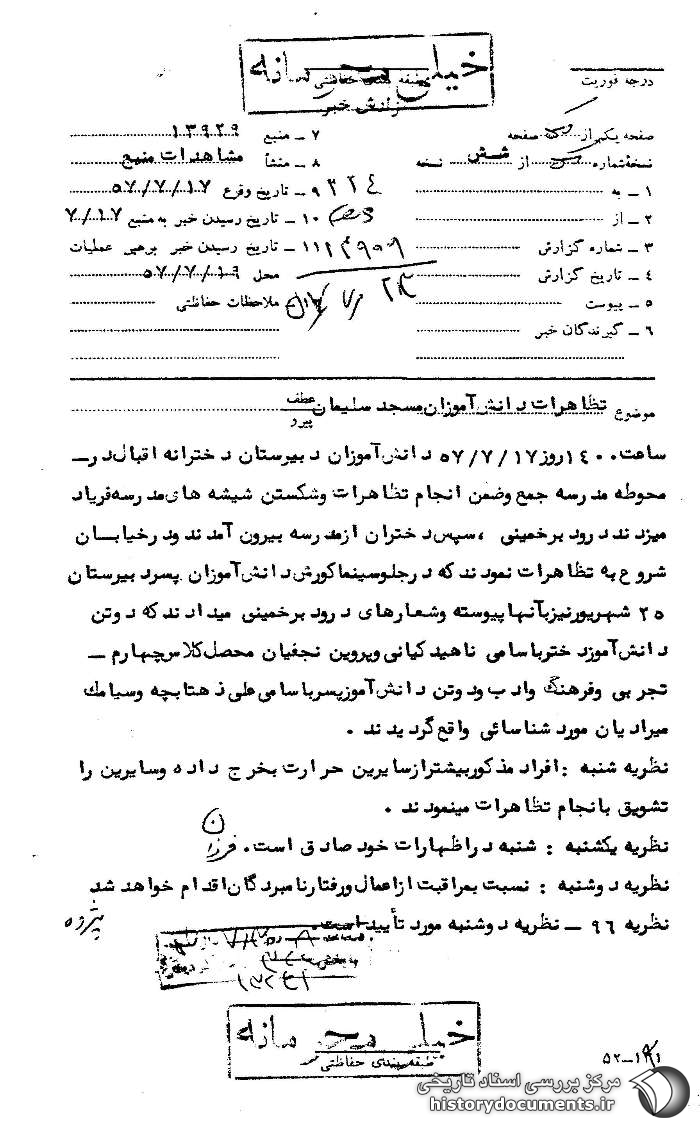 خیلی محرمانه
طبقه بندی حفاظتی
گزارش خبر
درجه فوریت
صفحه یکم از صفحه
نسخه شماره از شش نسخه
۱ ـ به
۲ ـ از
۳ ـ شماره گزارش
۴ ـ تاریخ گزارش
۵ ـ پیوست
۶ ـ گیرندگان خبر
۷ ـ منبع ۱۳۹۲۹
۸ ـ منشأ مشاهدات منبع
۹ ـ تاریخ وقوع ۵۷/۷/۱۷
۱۰ ـ تاریخ رسیدن خبر به منبع ۷/۱۷
۱۱ ـ تاریخ رسیدن خبر برهبر عملیات
محل ۵۷/۷/۱۹
ملاحظات حفاظتی
۳۲۴
موضوع تظاهرات دانش آموزان مسجد سلیمان
عطف
پیرو
ساعت ۱۴۰۰ روز ۵۷/۷/۱۷ دانش آموزان دبیرستان دخترانه اقبال در ـ
محوطه مدرسه جمع وضمن انجام تظاهرات وشکستن شیشه های مدرسه فریاد
میزدند درود برخمینی ، سپس دختران ازمدرسه بیرون آمدند ودرخیابان
شروع به تظاهرات نمودند که درجلوسینما کورش دانش آموزان پسردبیرستان
۲۵ شهریورنیزبآنها پیوسته وشعارهای درود برخمینی میدادند که دوتن
دانش آموزدختر باسامی ناهید کیانی وپروین نجفیان محصل کلاس چهارم ـ
تجربی وفرهنگ وادب ودوتن دانش آموزپسرباسامی علی ذهتابچه وسیامک
میرادیان مورد شناسائی واقع گردیدند .
نظریه شنبه : افراد مذکوربیشترازسایرین حرارت بخرج داده وسایرین را
تشویق بانجام تظاهرات مینمودند .
نظریه یکشنبه : شنبه دراظهارات خود صادق است. فرزان
نظریه دوشنبه : نسبت بمراقبت ازاعمال ورفتارنامبردگان اقدام خواهد شد
نظریه ۹۶ ـ نظریه دوشنبه مورد تأیید است. پژوه
خیلی محرمانه
طبقه بندی حفاظتی
مرکز بررسی اسناد تاریخی
historydocuments.ir